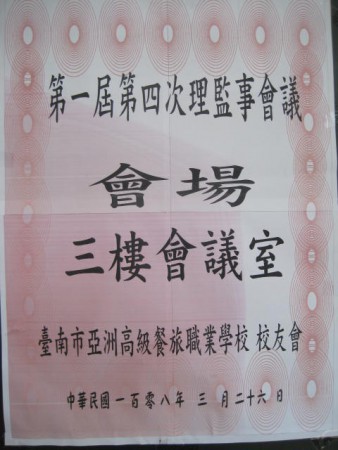 第一屆第四次理監事會議
會場
三樓會議室
臺南市亞洲高級餐旅職業學校 校友會
中華民國一百零八年 三 月二十六 日